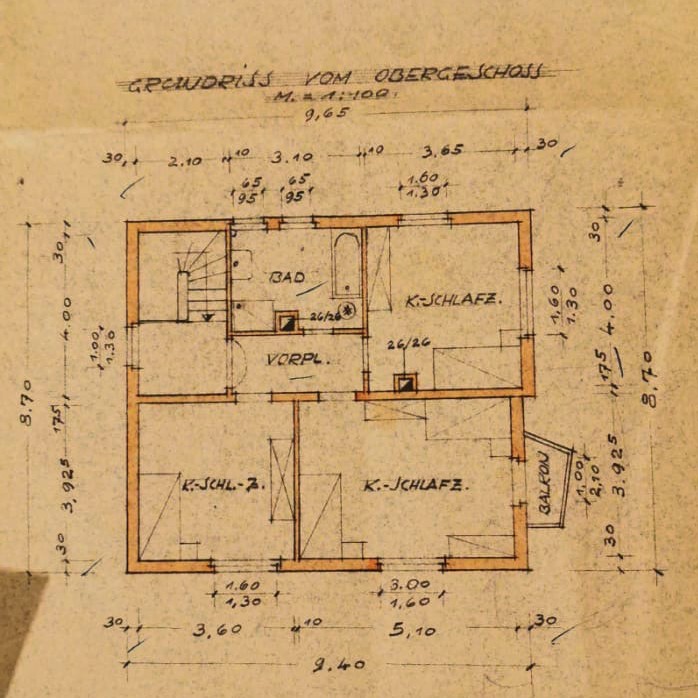 GRUNDRISS VOM OBERGESCHOSS
M. = 1:100.
9,65
30 2.10 10 3.10 10 3.65 30
65 65 1.60
95 95 1.30
30
4.00
1.00
1.30
8.70
175
3,925
30
BAD
26/26
K.-SCHLAFZ.
VORPL.
26/26
K.-SCHL.-Z.
K.-SCHLAFZ.
BALKON
30
1,60
1.30
4.00
175
8.70
1,00
2,10
3.925
30
1.60 3.00
1,30 1,60
30 3,60 10 5,10 30
9.40